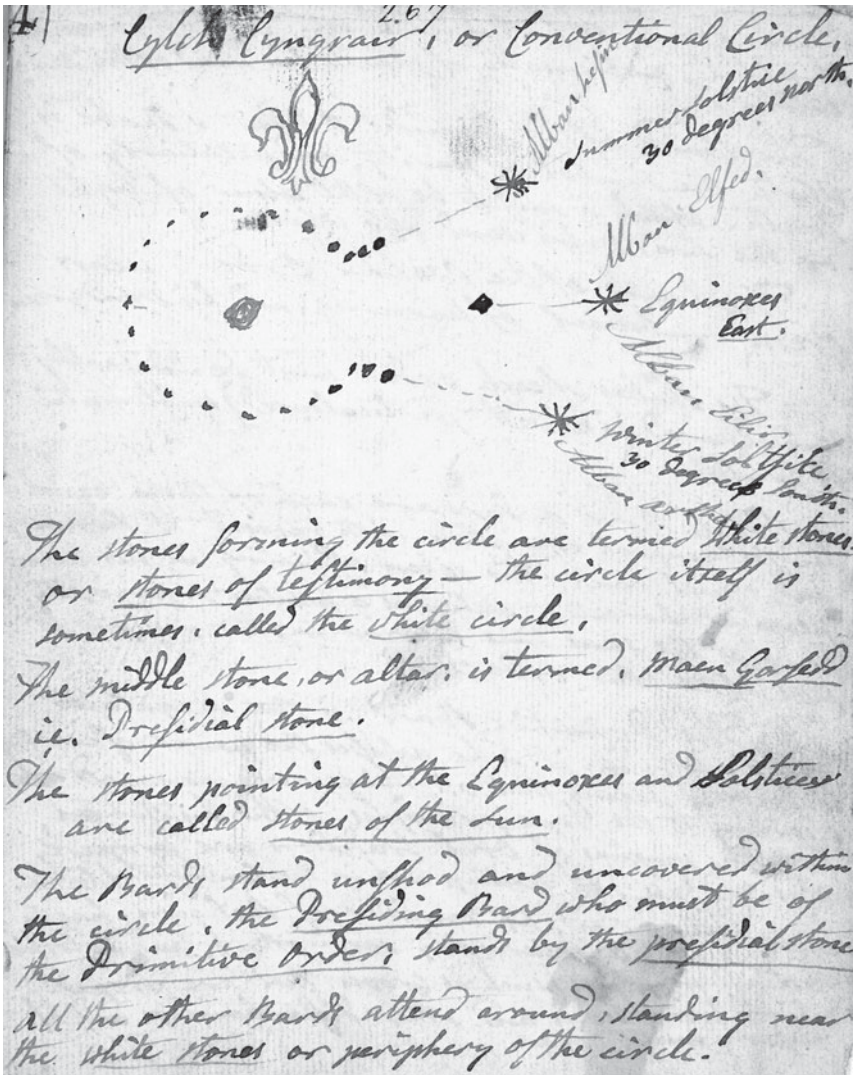 41
267
Cylch Cyngrair, or Conventional Circle,
Alban hefin
Summer Solstice
30 degrees north.
Alban Elfed.
Equinoxes
East.
Alban Eilir
Winter Solstice
30 degrees South.
Alban arthan
The stones forming the circle are termed White stones.
or stones of testimony — the circle itself is
sometimes. called the white circle.
The middle stone, or altar. is termed. Maen Gorsedd
ie. Presidial stone.
The stones pointing at the Equinoxes and Solstices
are called stones of the Sun.
The Bards stand unshod and uncovered within
the circle. the Presiding Bard who must be of
the Primitive Order, stands by the presidial stone
all the other Bards attend around, standing near
the white stones or periphery of the circle.